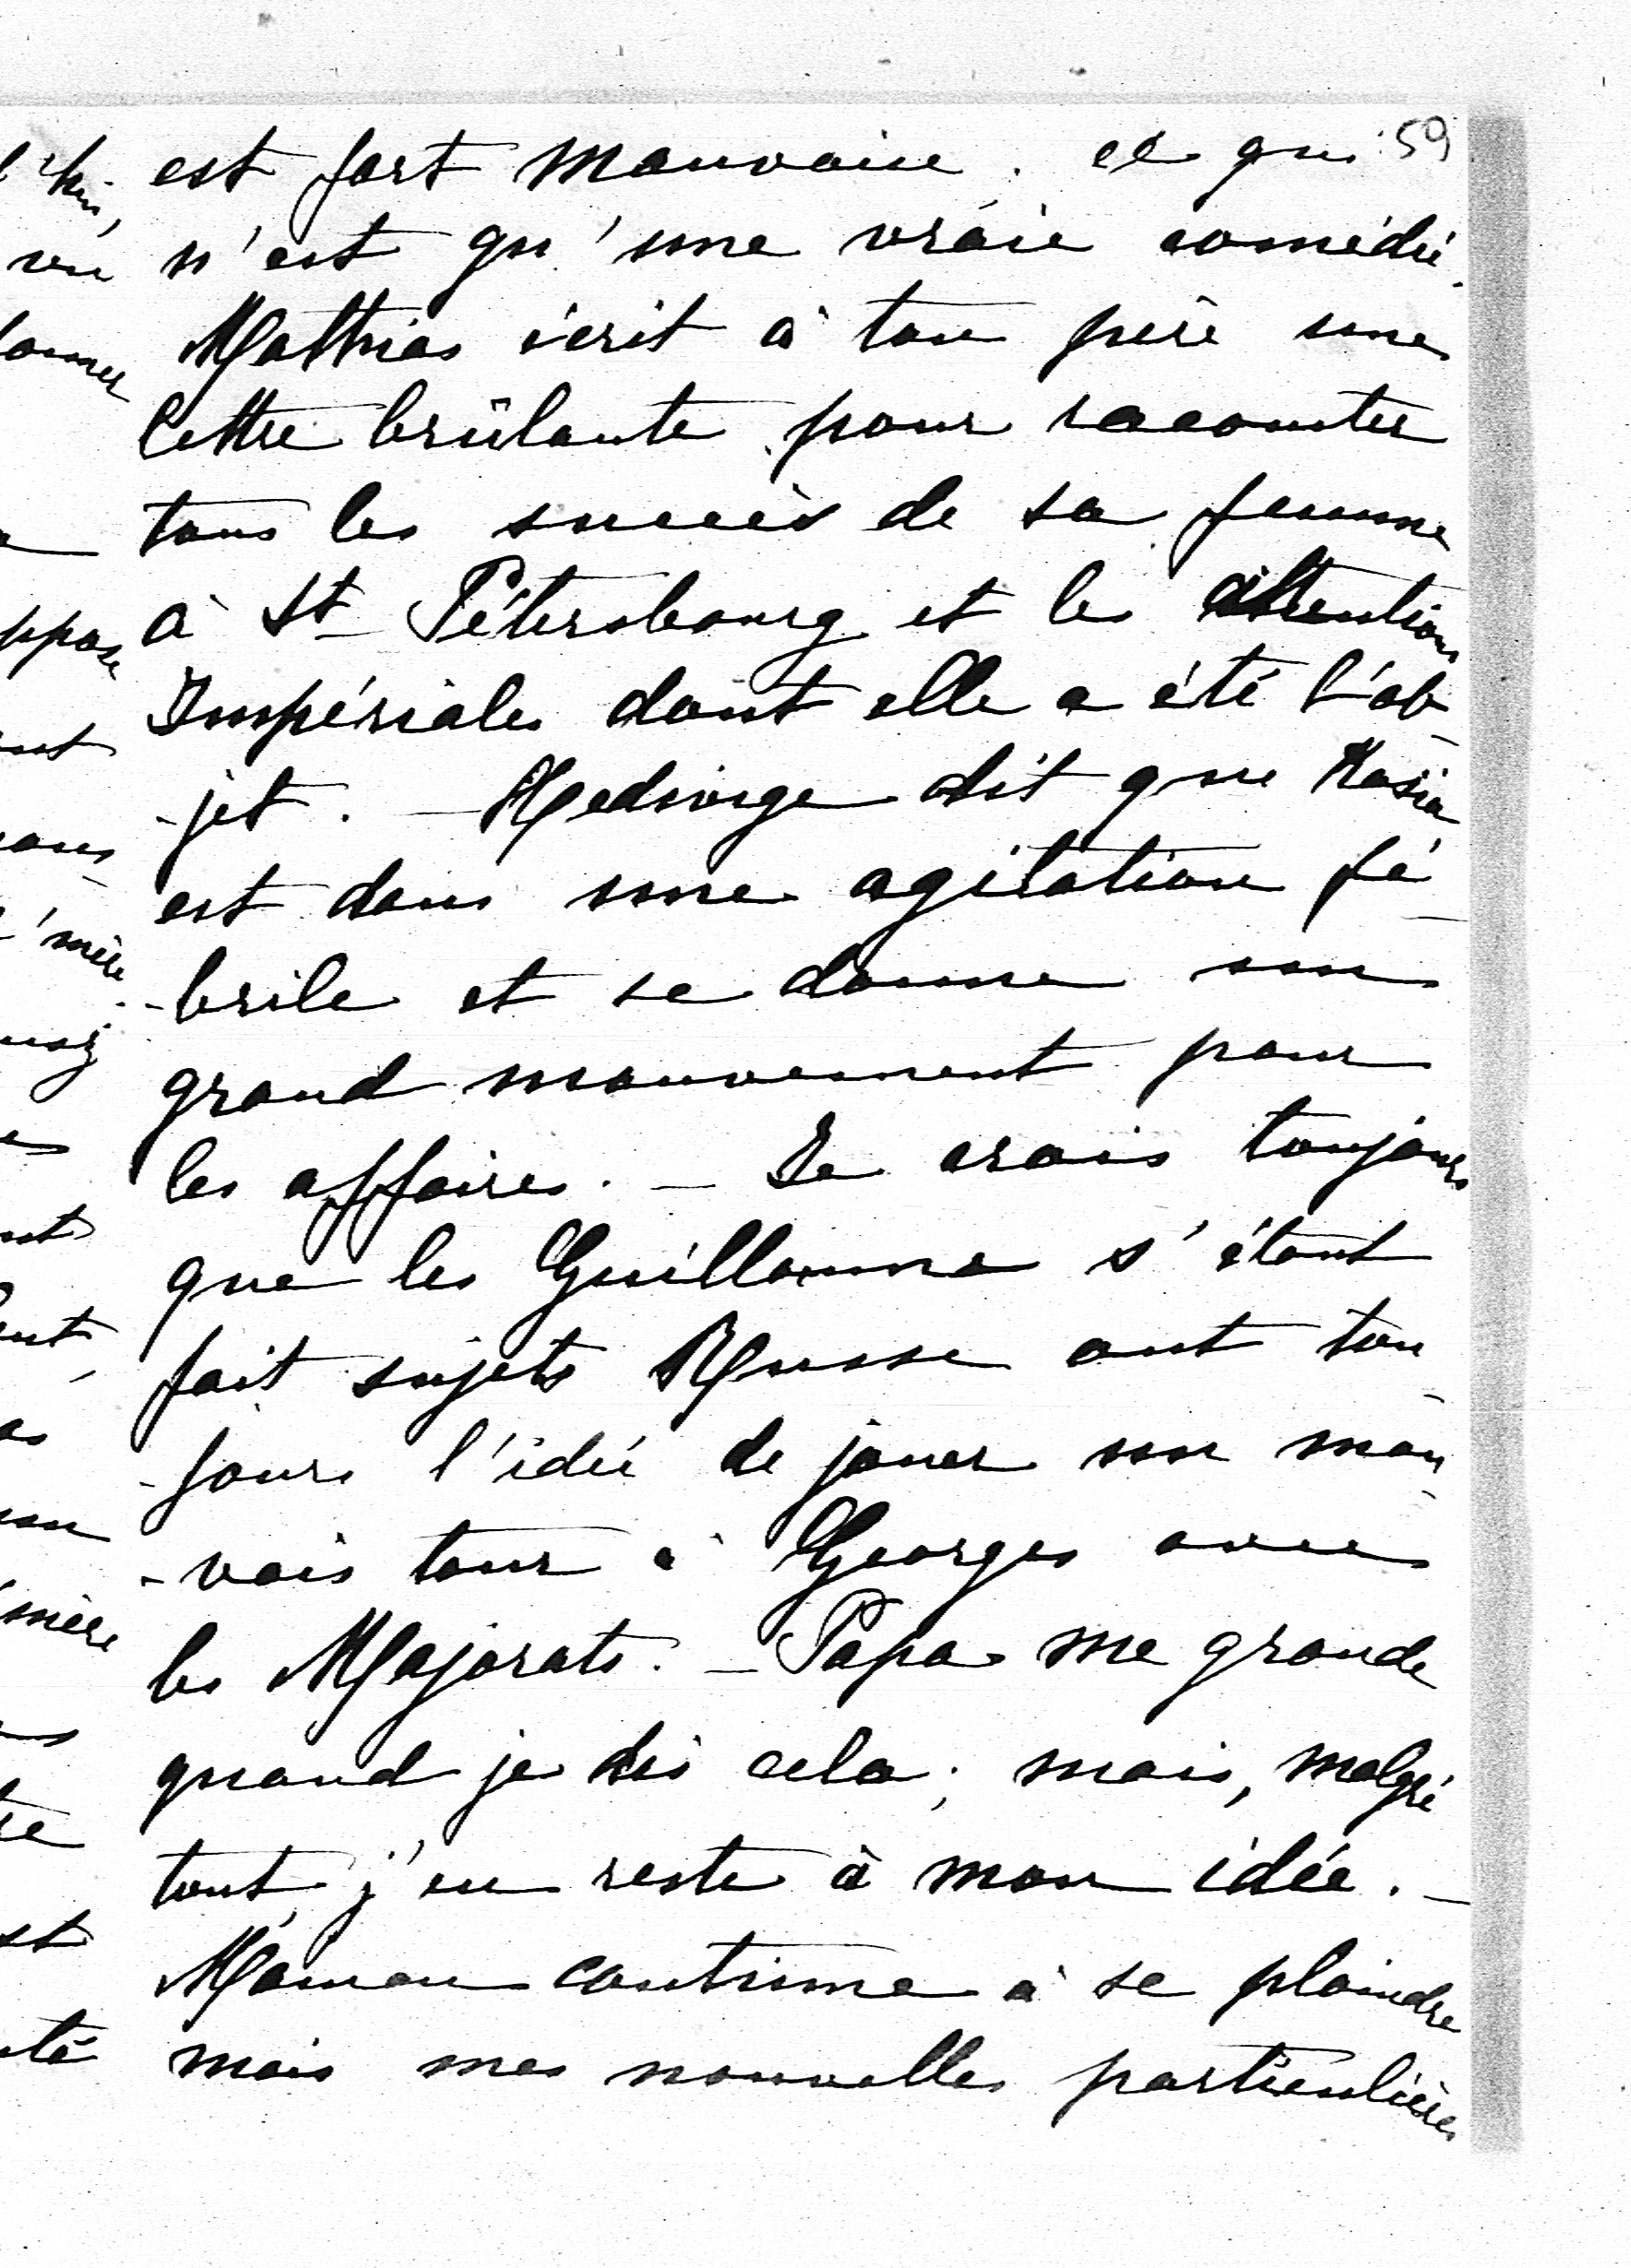 59
est fort mauvaise. ce qui
n'est qu'une vraie comédie.
Mathias écrit à ton père une
lettre brûlante pour raconter
tous les succès de sa femme
à St Pétersbourg et les attentions
Impériales dont elle a été l'ob-
-jet. — Hedwige dit que Rosia
est dans une agitation fé-
-brile et se donne un
grand mouvement pour
les affaires. — Je crois toujours
que les Guillaume s'étant
fait sujets Russe ont tou-
-jours l'idée de jouer un mau-
-vais tour à Georges avec
les Majorats. — Papa me gronde
quand je dis cela; mais, malgré
tout, j'en reste à mon idée. —
Maman continue à se plaindre
mais mes nouvelles particulières